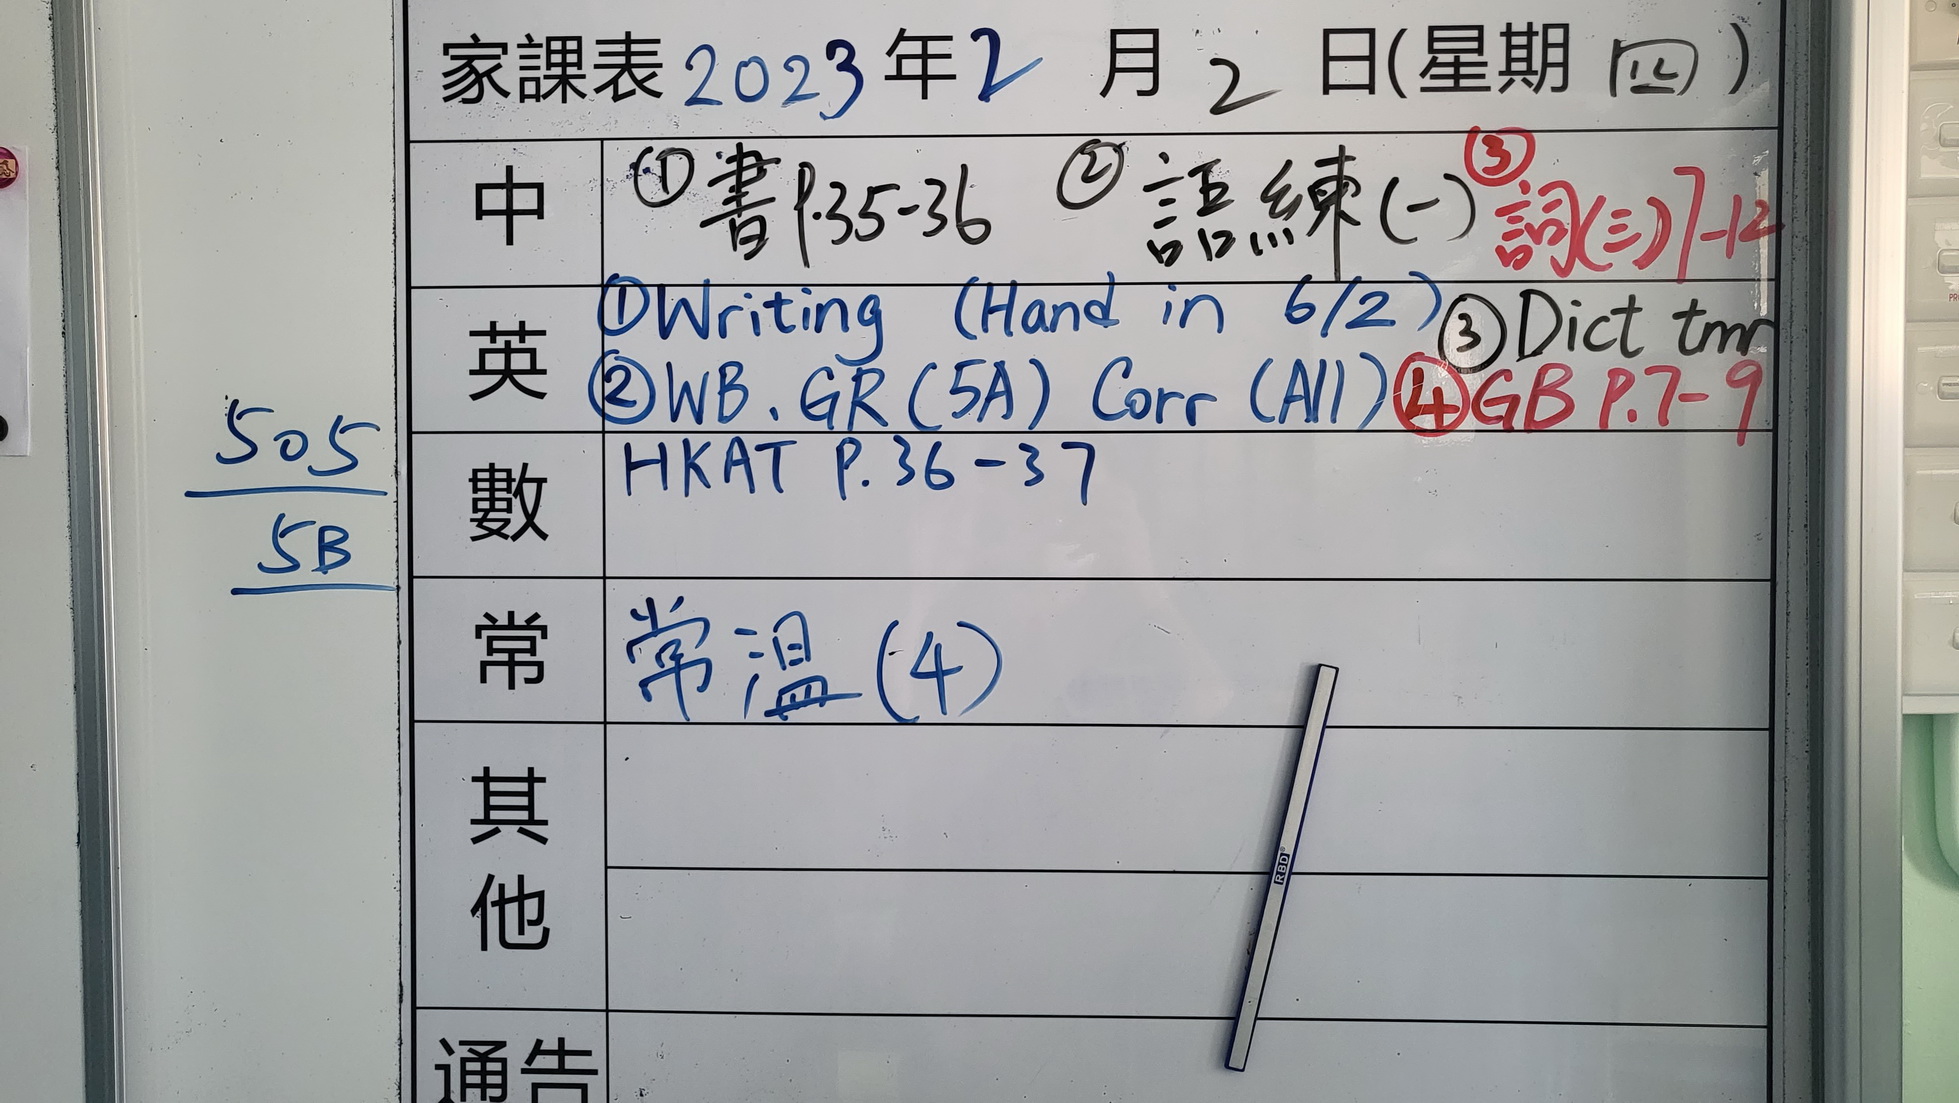 家課表 2023年2月2日(星期四)
中 ①書P.35-36 ②語練(一) ③詞(三)7-12
英 ①Writing (Hand in 6/2) ③Dict tmr
②WB. GR (5A) Corr (All) ④GB P.7-9
505
數 HKAT P.36-37
5B
常 常溫(4)
其他
RBD
通告